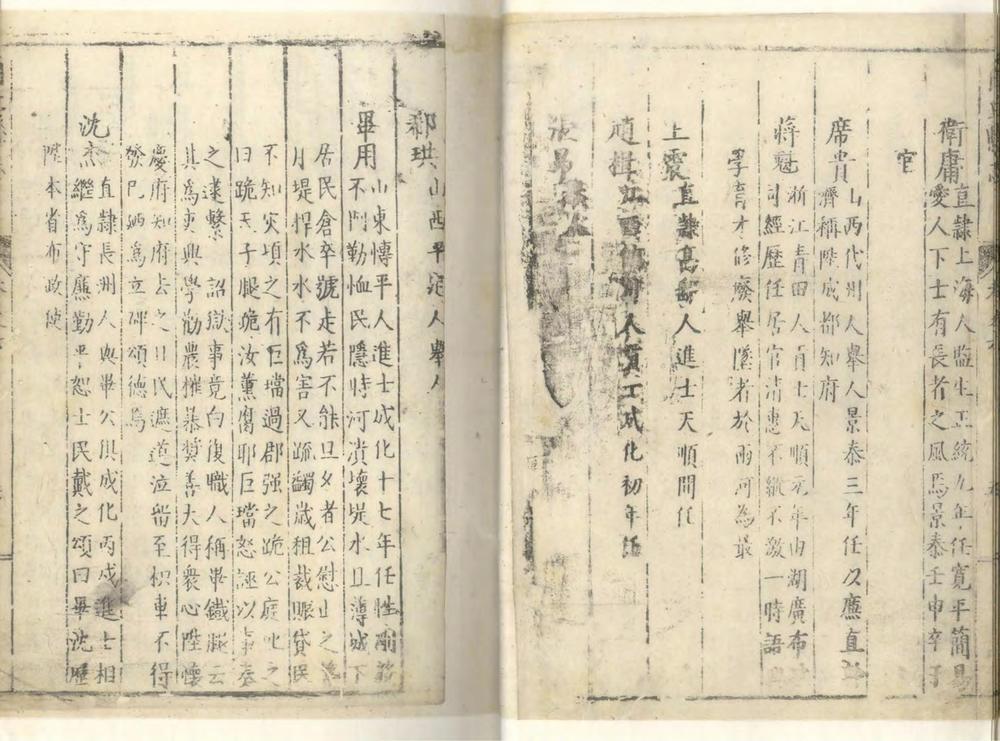 衛庸直隸上海人監生正統九年任寬平簡易
愛人下士有長者之風焉景泰壬申卒于
官
席貴山西代州人舉人景泰三年任以廉直
濟稱陞成都知府
蔣魁浙江青田人貢士天順元年由湖廣布
司經歷任居官清惠不縱不激一時語
學育才修廢舉墜者於兩河為最
上震直隸人進士天順間任
趙楫江西人貢士成化初年任
張昂
郝珙山西平定人舉人
畢用山東博平人進士成化十七年任性剛
不鬥勤恤民隱時河潰壞堤水且薄城下
居民倉卒號走若不能旦夕者公慰止之
月堤捍水水不為害又疏蠲歲租裁賑貸民
不知災頃之有巨璫過郡强之跪公庭叱之
曰跪天子腿跪汝薰腐耶巨璫怒誣以事奏
之逮繫 詔獄事竟白復職人稱畢鐵腿云
其為吏興學勸農摧暴奬善大得衆心陞懷
慶府知府去之日民遮道泣留至枳車不得
發乃洒為立碑頌德焉
沈杰直隸長洲人與畢公俱成化丙戌進士相
繼為守廉勤平恕士民戴之頌曰畢沈歷
陞本省布政使